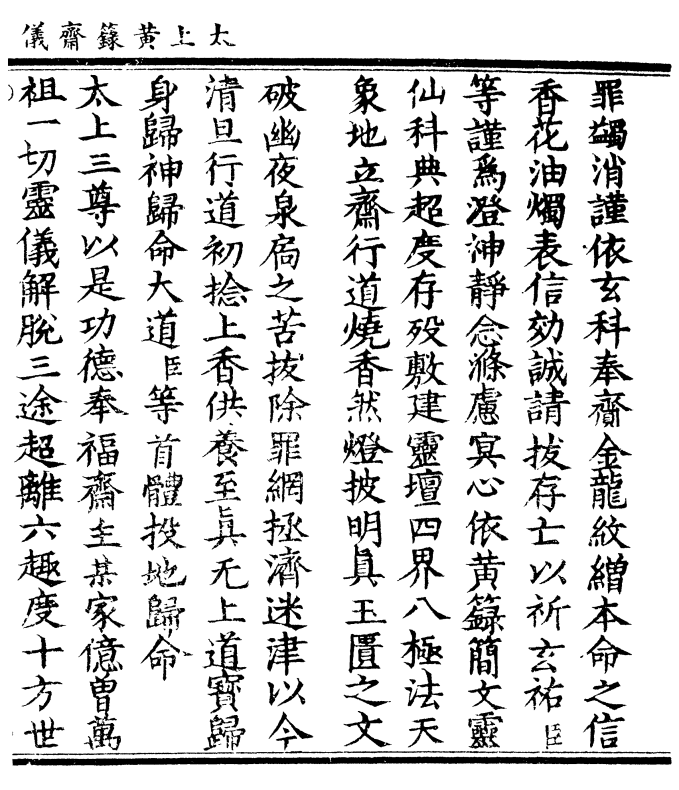 太上黃籙齋儀
罪蠲消謹依玄科奉齎金龍紋繒本命之信
香花油燭表信効誠請拔存亡以祈玄祐臣
等謹爲澄神靜念滌慮冥心依黃籙簡文靈
仙科典超度存歿敷建靈壇四界八極法天
象地立齋行道燒香然燈披明真玉匱之文
破幽夜泉扃之苦拔除罪網拯濟迷津以今
清旦行道初捻上香供養至真无上道寶歸
身歸神歸命大道臣等首體投地歸命
太上三尊以是功德奉福齋主某家億曾萬
祖一切靈儀解脫三途超離六趣度十方世